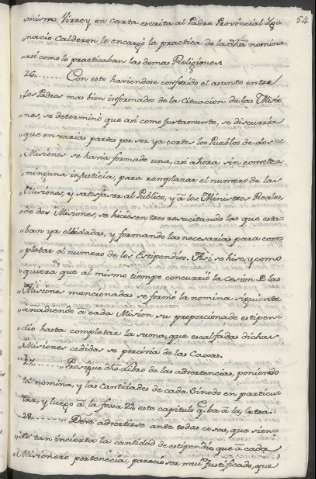 54
mismo Virrey en carta escrita al Padre Provincial Yg-
nacio Calderon le encargó la practica de la dha nomina
asi como lo practicaban las demas Religiones.
26....... Con esto haviendose conferido el asunto entre
los Padres mas bien informados de la situacion de las Misio
nes, se determinó que asi como justamente, se discurria
que en varias partes por ser ya cortos los Pueblos de dos
Misiones se havia formado una, asi ahora sin cometer
ninguna injusticia, para remplazar el numero de las
Misiones, y satisfacer al Publico, y á los Ministros Reales
de dos Misiones, se hiciesen tres resucitando las que esta
ban ya olvidadas, y formando las necesarias para com
pletar el numero de los Estipendios. Asi se hizo, y como
quiera que al mismo tiempo concurrió la cesion de las
Misiones mencionadas se formó la nomina siguiente
anadiendo á cada Mision su proporcionado estipen
dio hasta completar la suma, que rebajadas dichas
Misiones cedidas se percivia de las Caxas.
27....... Pues que dho Libro de las advertencias, poniendo
la nomina, y las cantidades de cada Sinodo en particu
lar, y luego á la foxa de este capitulo q. iba á la letra.
28....... Devo advertirse ante todas cosas, que sien-
do tan encierta la cantidad de estipendio que á cada
Misionero pertenecia, parecerá mui justificado, que